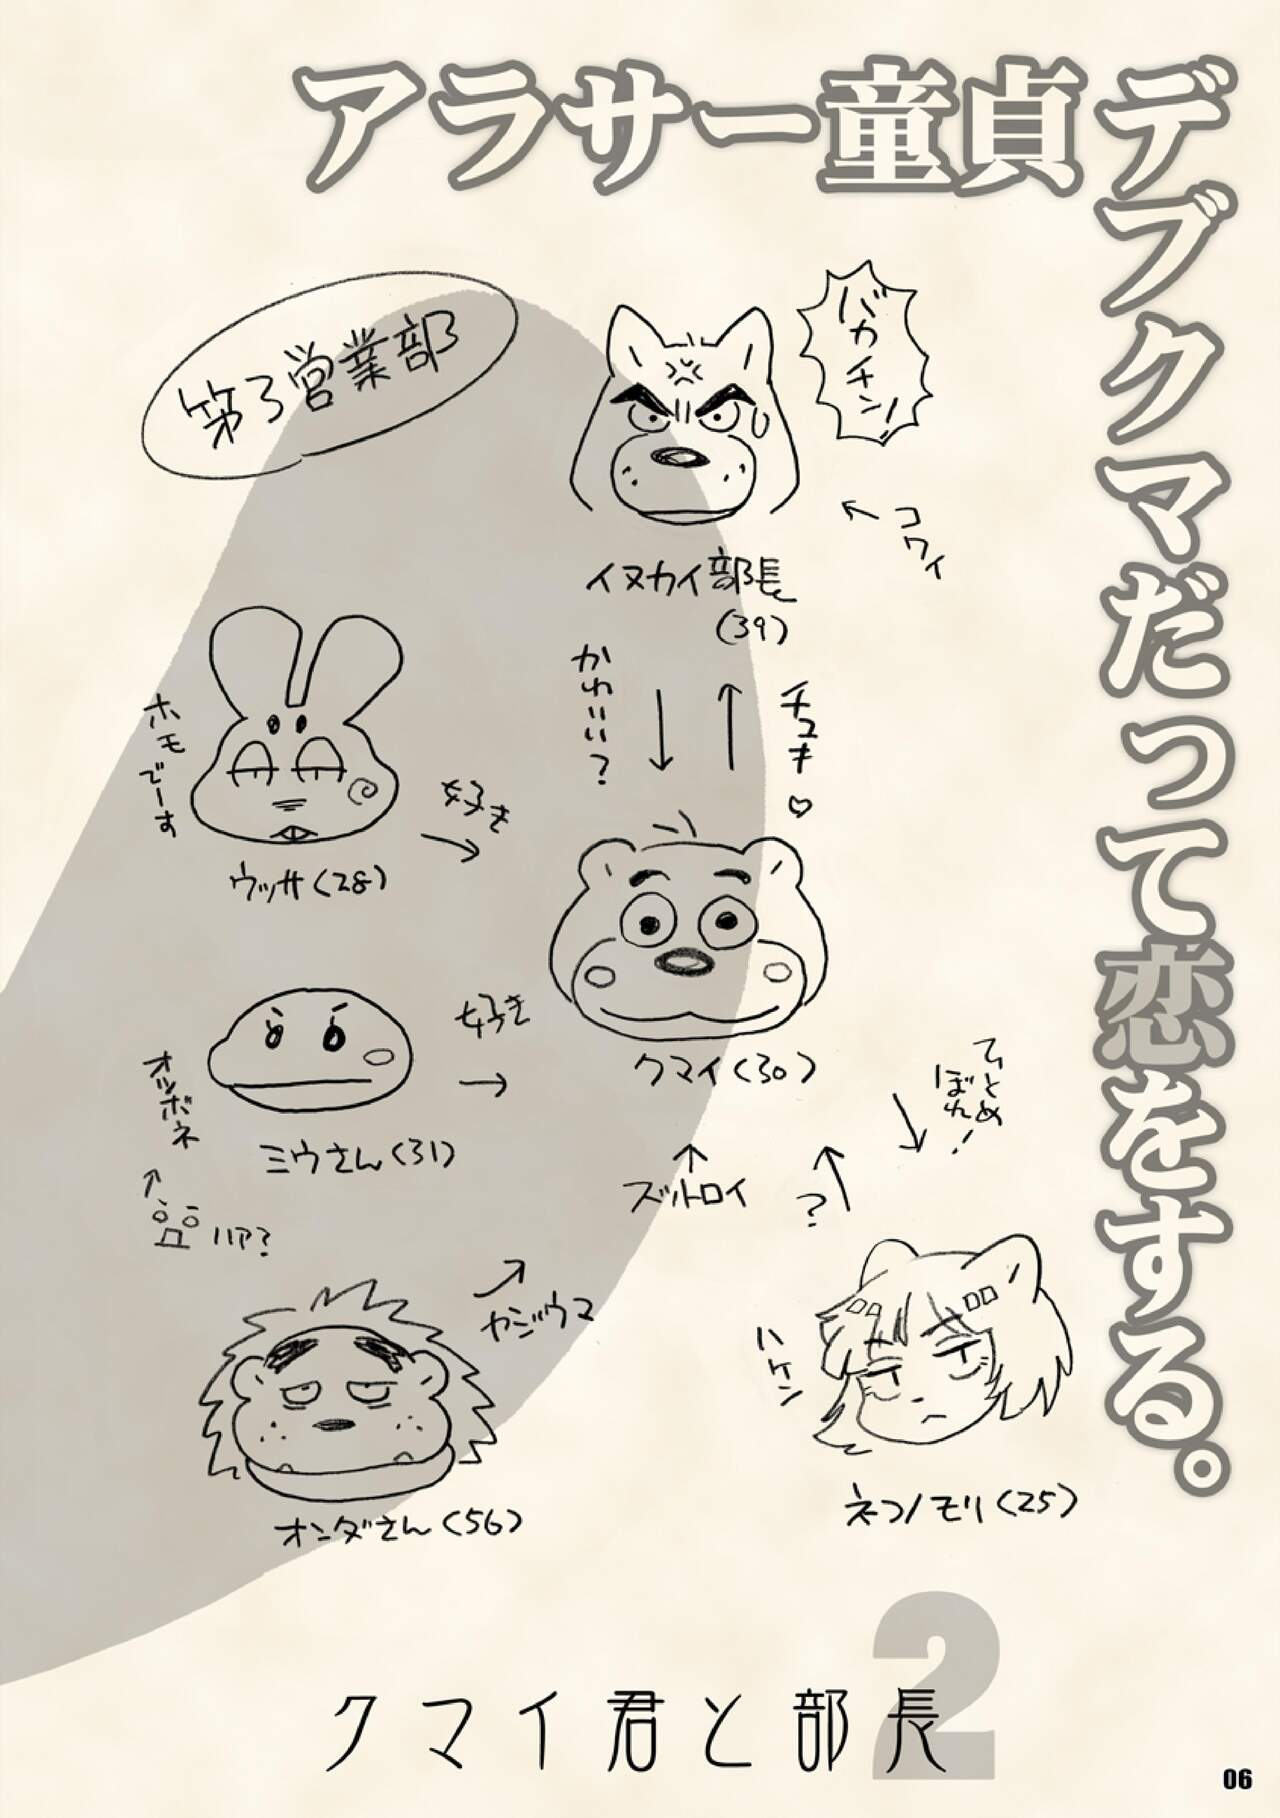 アラサー童貞デブクマだって恋をする。
第3営業部
バカチン!
コワイ
イヌカイ部長
(39)
かわいい?
チュキ♡
ホモでーす
好き
ウッサ(28)
クマイ(30)
好き
オツボネ
ミウさん(31)
ハア?
ズットロイ
?
ひとめ
ぼれ!
ヤジウマ
オンダさん(56)
ハケン
ネコノモリ(25)
2
クマイ君と部長
06